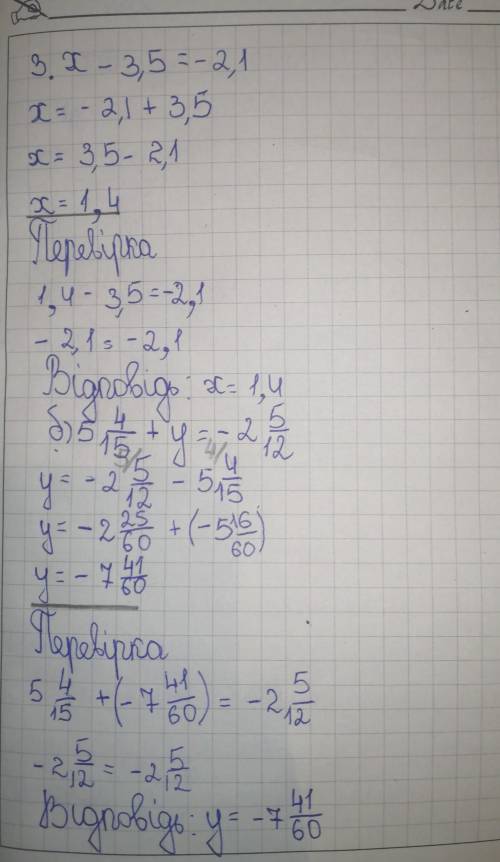 Date
3. x - 3,5 = -2,1
x = - 2,1 + 3,5
x = 3,5 - 2,1
x = 1,4
Перевірка
1,4 - 3,5 = -2,1
- 2,1 = -2,1
Відповідь: x = 1,4
б) 5 4/15 + y = - 2 5/12
5/ 4/
y = - 2 5/12 - 5 4/15
y = - 2 25/60 + (- 5 16/60)
y = - 7 41/60
Перевірка
5 4/15 + (- 7 41/60) = - 2 5/12
- 2 5/12 = - 2 5/12
Відповідь: y = - 7 41/60